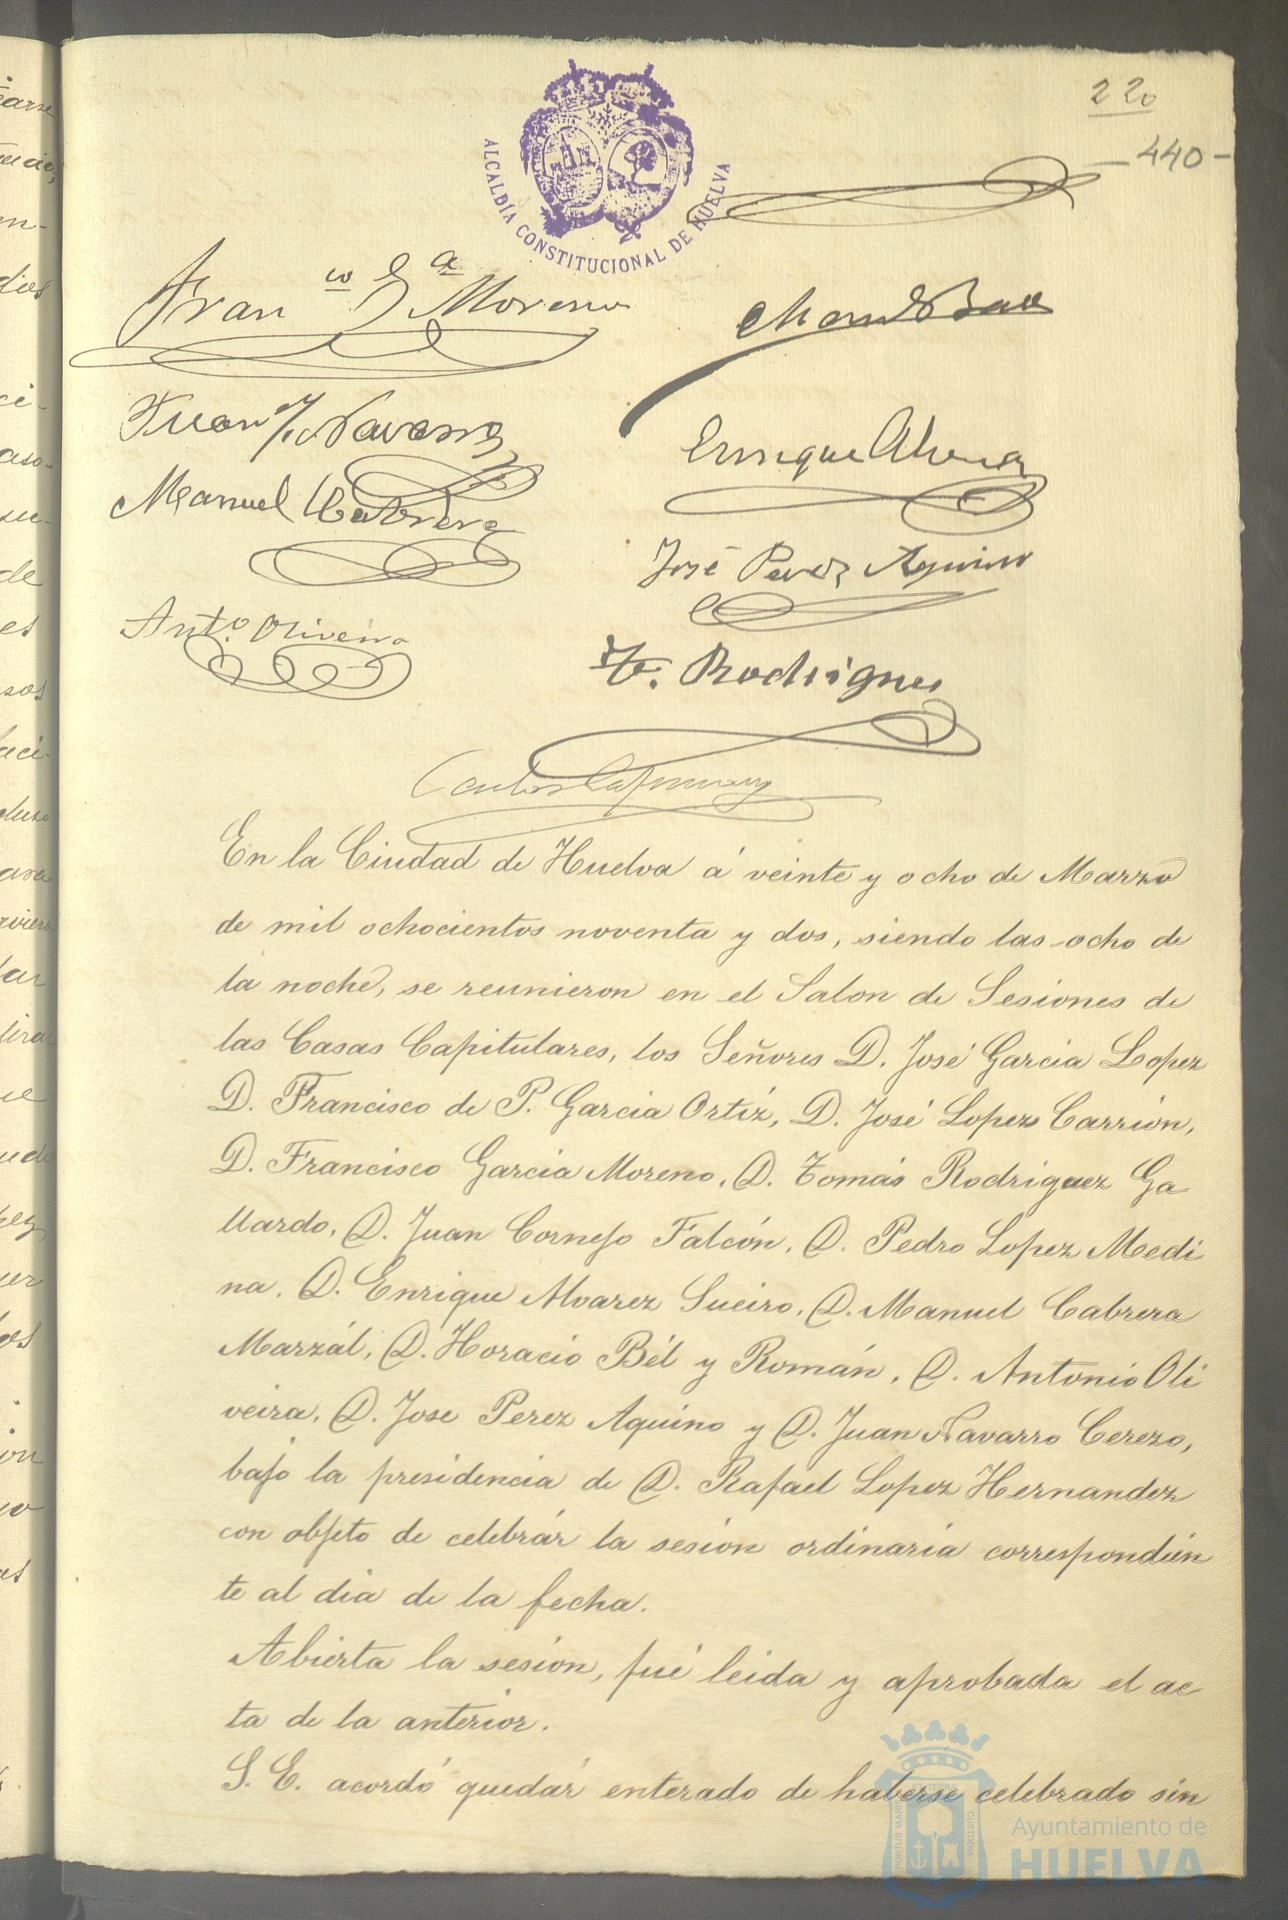 220
-440-
ALCALDÍA CONSTITUCIONAL DE HUELVA
Fran.co Ga Moreno
Juan Navarro
Enrique Alvarez
Manuel Cabrera
José Perez Aquino
Anto. Oliveira
Rodrigues
Carlos
En la Ciudad de Huelva á veinte y ocho de Marzo
de mil ochocientos noventa y dos, siendo las ocho de
la noche, se reunieron en el Salon de Sesiones de
las Casas Capitulares, los Señores D. José Garcia Lopez
D. Francisco de P. Garcia Ortíz, D. José Lopez Carrión,
D. Francisco Garcia Moreno, D. Tomás Rodriguez Ga
llardo, D. Juan Cornejo Falcón, D. Pedro Lopez Medi
na, D. Enrique Alvarez Sueiro, D. Manuel Cabrera
Marzál, D. Horacio Bél y Román, D. Antonio Oli
veira, D. Jose Perez Aquino y D. Juan Navarro Cerezo,
bajo la presidencia de D. Rafael Lopez Hernandez
con objeto de celebrár la sesión ordinaria correspondien
te al dia de la fecha.
Abierta la sesión, fué leida y aprobada el ac
ta de la anterior.
S. E. acordó quedár enterado de haberse celebrado sin
Ayuntamiento de
HUELVA